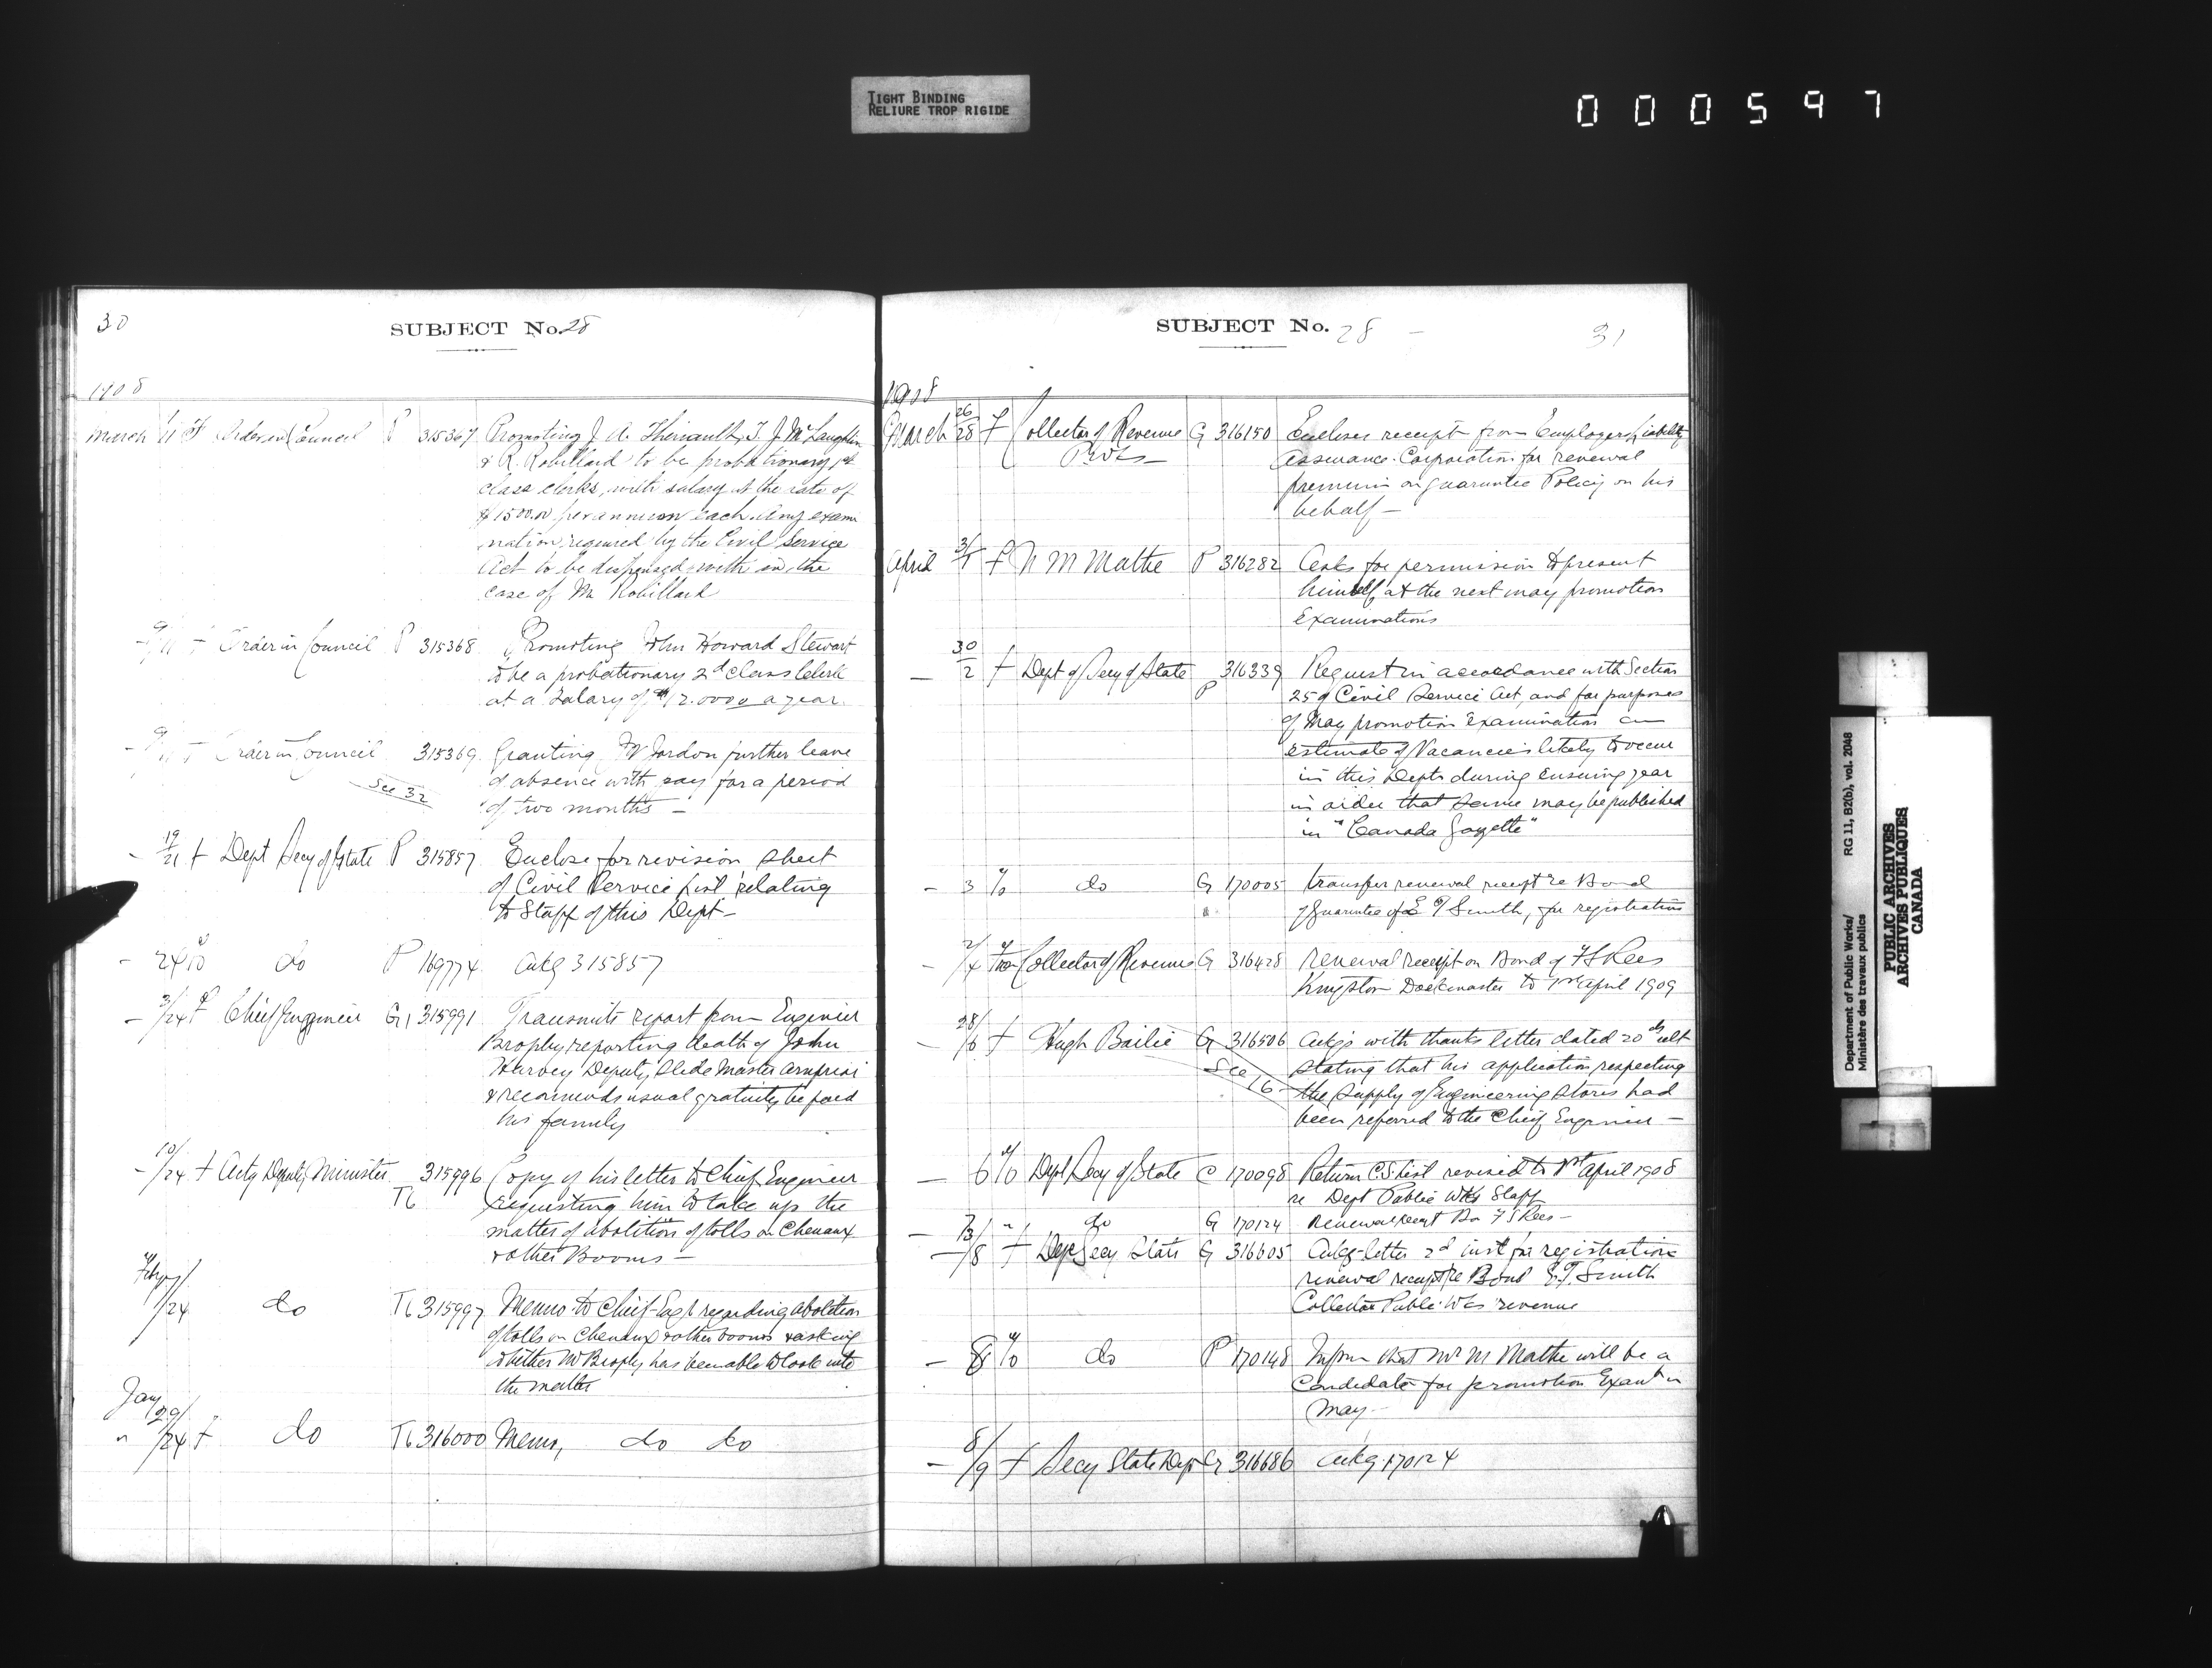 TIGHT BINDING
RELIURE TROP RIGIDE
000597
30
SUBJECT No. 28
1908
March 9/11 F Order in Council P 315367 Promoting J. A. Theriault, T. J. McLaughlin
& R. Robillard to be probationary 1st
class clerks, with salary at the rate of
$1500.00 per annum each. Any exami
nation required by the Civil Service
Act to be dispensed with in the
case of Mr Robillard
- 9/11 F Order in Council P 315368 Promoting John Howard Stewart
to be a probationary 2d class Clerk
at a Salary of $12.0000 a year.
- 9/11 F Order in Council 315369 Granting Jordon further leave
See 32 of absence with pay for a period
of two months -
- 19/21 F Dept Secy of State P 315857 Enclose for revision sheet
of Civil Service List relating
to Staff of this Dept -
- 24 do P 169774 Ackg 315857
- 3/24 F Chief Engineer G1 315991 Transmits report from Engineer
Brophy reporting death of John
Harvey Deputy Slide Master Arnprior
& recommends usual gratuity be paid
his family
- 10/24 F Actg Deputy Minister T6 315996 Copy of his letter to Chief Engineer
requesting him to take up the
matter of abolition of tolls on Chenaux
& other Booms -
Feby /24 do T6 315997 Memo to Chief Engr regarding abolition
of tolls on Chenaux & other booms & asking
whether Mr Brophy has been able to look into
the matter
Jany 29/24 F do T6 316000 Memo, do do
SUBJECT No. 28 - 31
1908
March 26/28 F Collector of Revenue G 316150 Encloses receipt from Employers Liability
Assurance Corporation for renewal
premium on guarantee Policy on his
behalf -
April 3/1 F N M Mathe P 316282 Asks for permission to present
himself at the next may promotion
Examinations
- 30/2 F Dept of Secy of State P 316339 Request in accordance with Section
25 of Civil Service Act, and for purposes
of May promotion Examination an
estimate of Vacancies likely to occur
in this Dept during Ensuing year
in order that same may be published
in "Canada Gazette"
- 3 do G 170005 transfer renewal receipt re Bond
of Guarantee of E T Smith, for registration
- 2/4 Collector of Revenue G 316428 Renewal receipt on Bond of F S Rees
Kingston Dockmaster to 1st april 1909
- 28/6 F Hugh Bailie G 316506 Ackgs with thanks letter dated 20th ult
See 16 stating that his application respecting
the supply of Engineering Stores had
been referred to the Chief Engineer -
- 6 Dept Secy of State C 170098 Return C.S. List revised to 1st April 1908
re Dept Public Wks Staff
- 7 do G 170124 Renewal receipt F S Rees -
- 3/8 F Dept Secy State G 316605 Ackg letter 2d inst for registration
renewal receipt re Bond E. T. Smith
Collector Public Wks revenue
- 8 do P 170148 Inform that Mr M Mathe will be a
Candidate for promotion Exam in
May -
- 8/9 F Secy State Dept G 316686 Ackg 170124
Department of Public Works/
Ministère des travaux publics
RG 11, B2(b), vol. 2048
PUBLIC ARCHIVES
ARCHIVES PUBLIQUES
CANADA